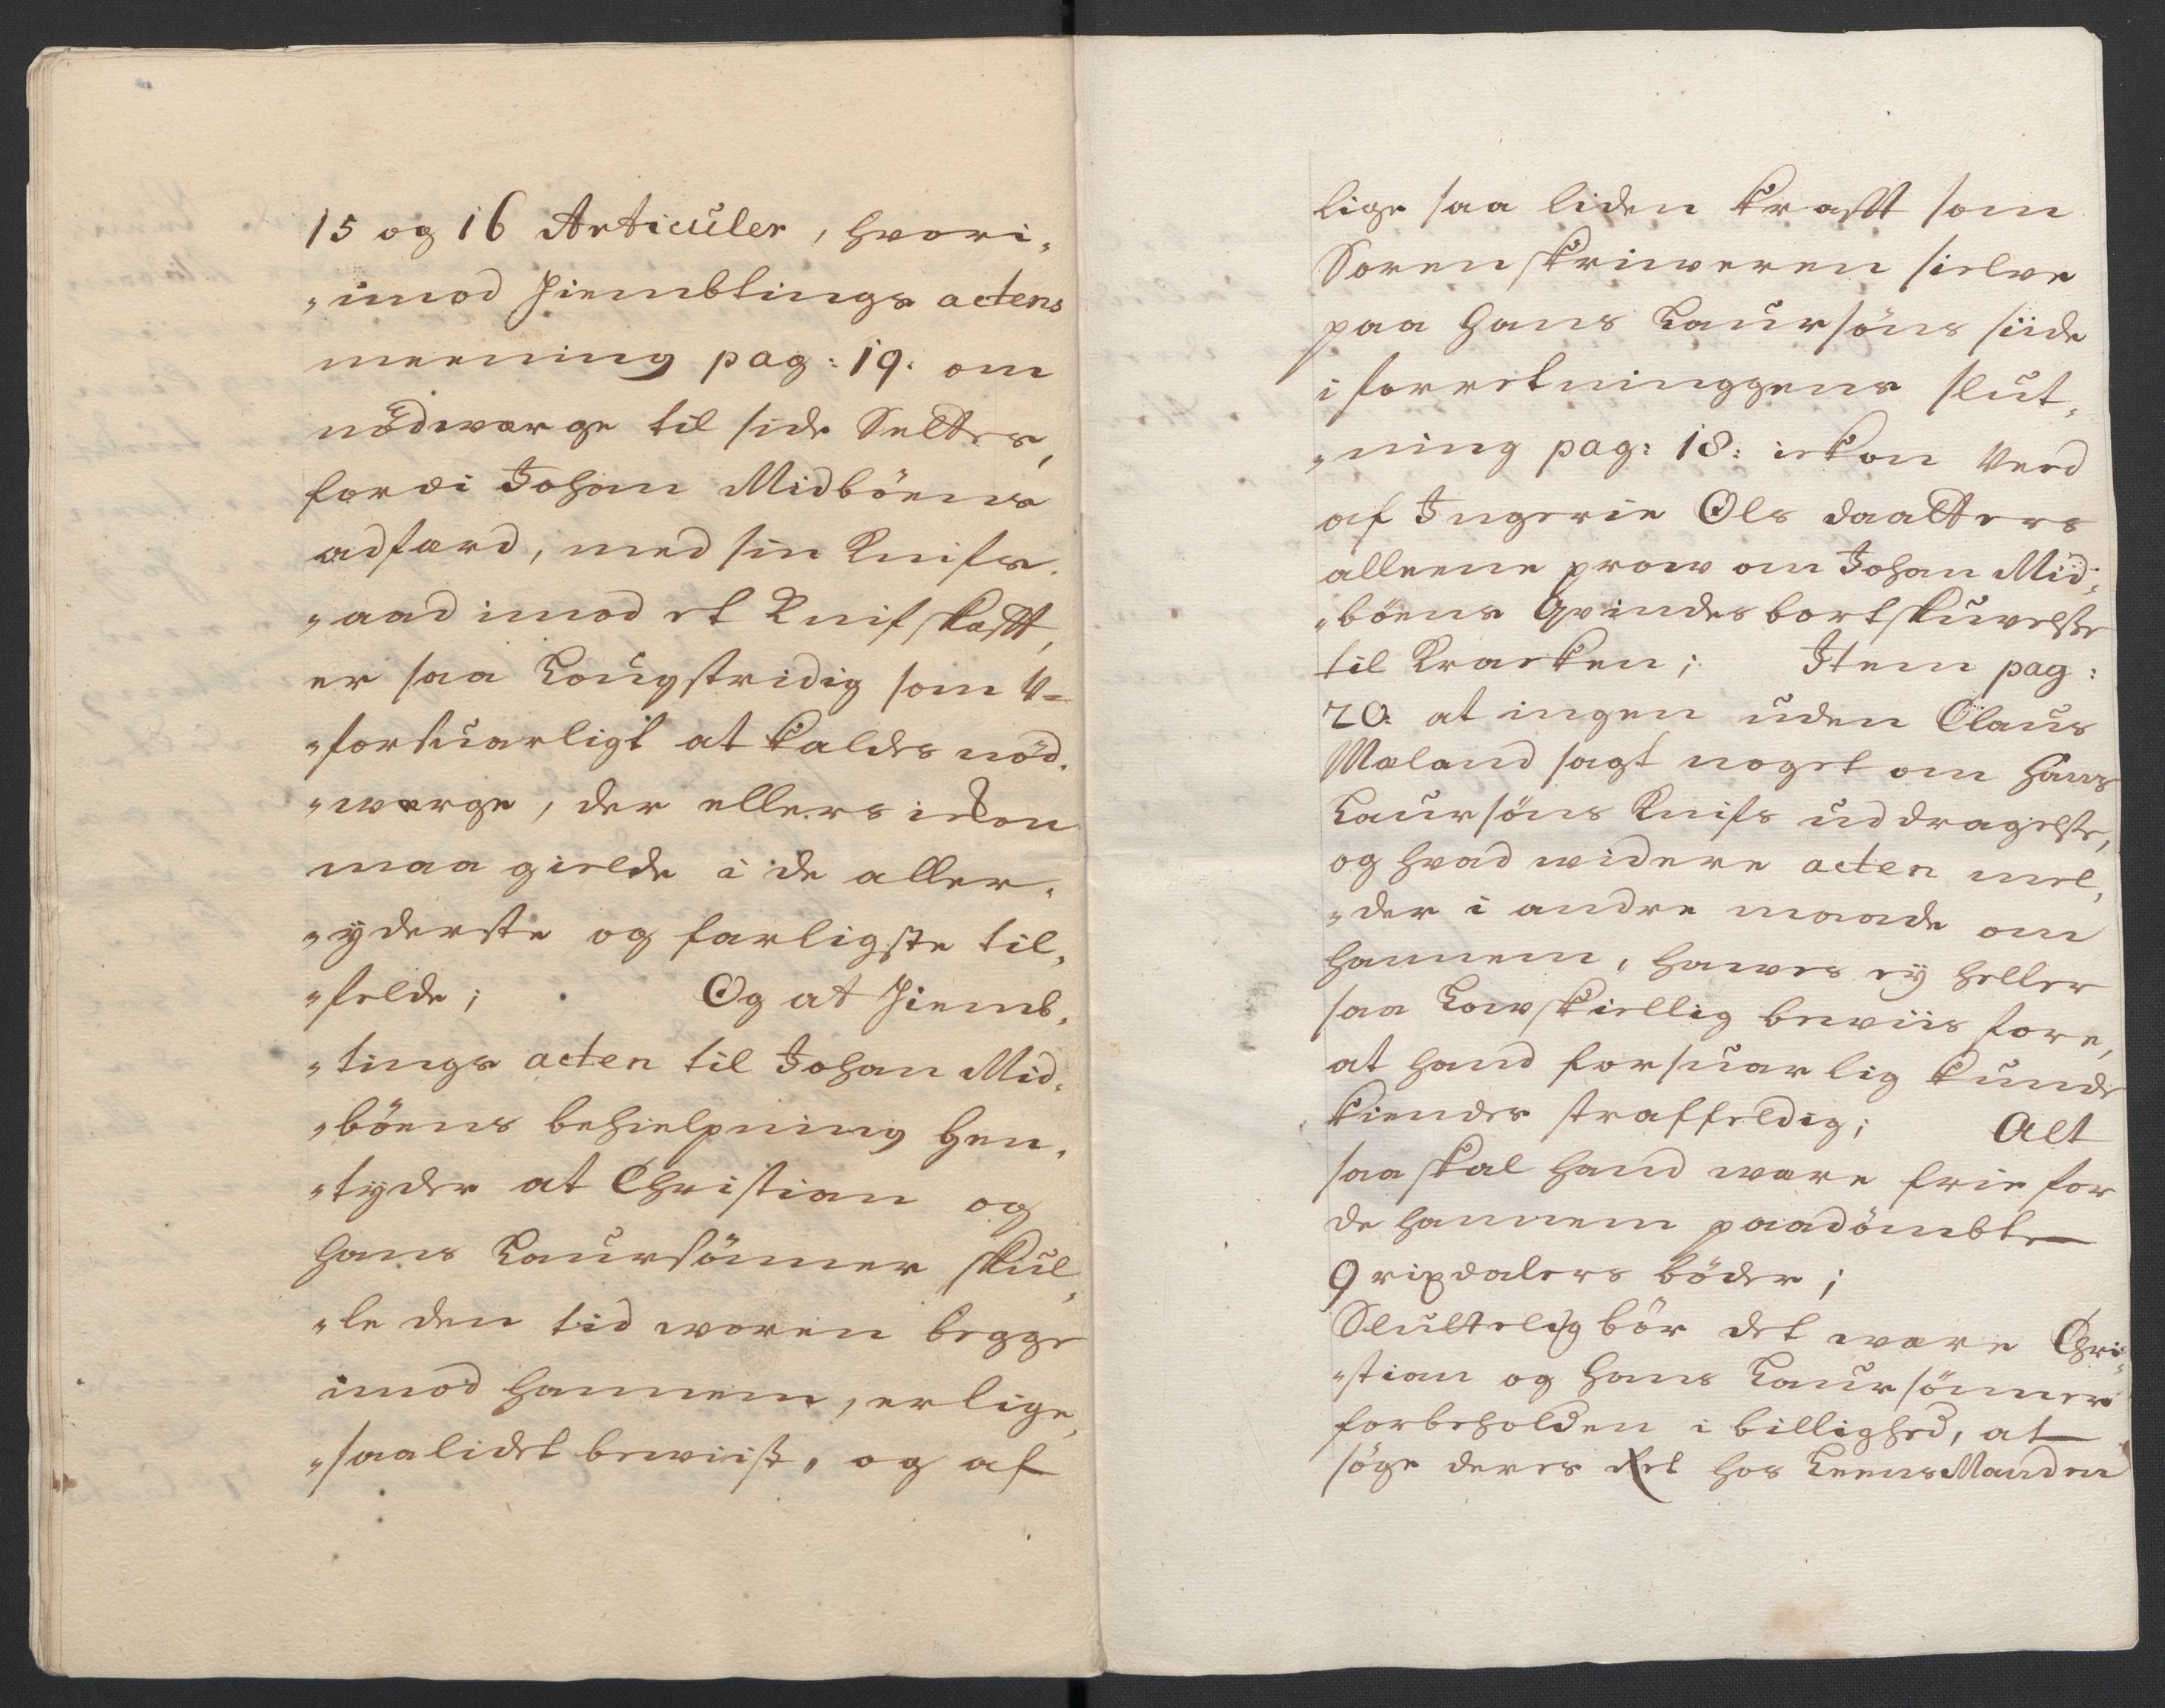 15 og 16 Articuler, hvori,
„imod Hiembtings actens
meening pag: 19. om
nödwærge til side Settes,
fordi Johan Midböens
adfærd, med sin Knifs,
„aad imod et Knifskafft,
er saa Lougstridig som U=
„forsuarligt at kaldes nöd,
„werge, der ellers ickon
maa gielde i de aller,
„yderste og farligste til,
„felde; Og at Hiemb,
„tings acten til Johan Mid,
„böens behielpning hen,
„tyder at Christian og
Hans Laursönner skul,
„le den tid woren begge
imod hannem, er lige,
„saalidet beviist, og af
lige saa liden krafft som
Sorenskriweren sielve
paa Hans Laursöns siide
i forretninggens slut,
„ning pag: 18: ickon Ved
af Ingerie Ols daatters
alleene prow om Johan Mid,
„böens Qvindes bortskuvelsse
til Kracken; Item pag:
20. at ingen uden Claus
Mæland sagt noget om Hans
Laursöns Knifs uddragelsse,
og hvad widere acten mel,
„der i andre maade om
hannem, hawes ey heller
saa Lowskiellig beviis fore,
at hand forsuarlig kunde
kiendes straffeldig; Alt
saa skal hand were frie for
de hannem paadömbte
9 rixdalers böder;
Sluttelig bör det were Chri,
„stian og Hans Laursönner
forbeholden i billighed, at
söge deres Ret hos LeensManden